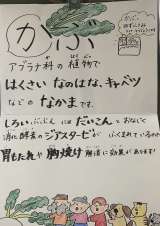 かぶ
アブラナ科の植物で
はくさい なのはな、キャベツ
などの なかまです。
しろいぶぶん には だいこん とおなじで
消化酵素のジアスターゼが ふくまれているので
胃もたれや 胸焼け 解消に効果があります!